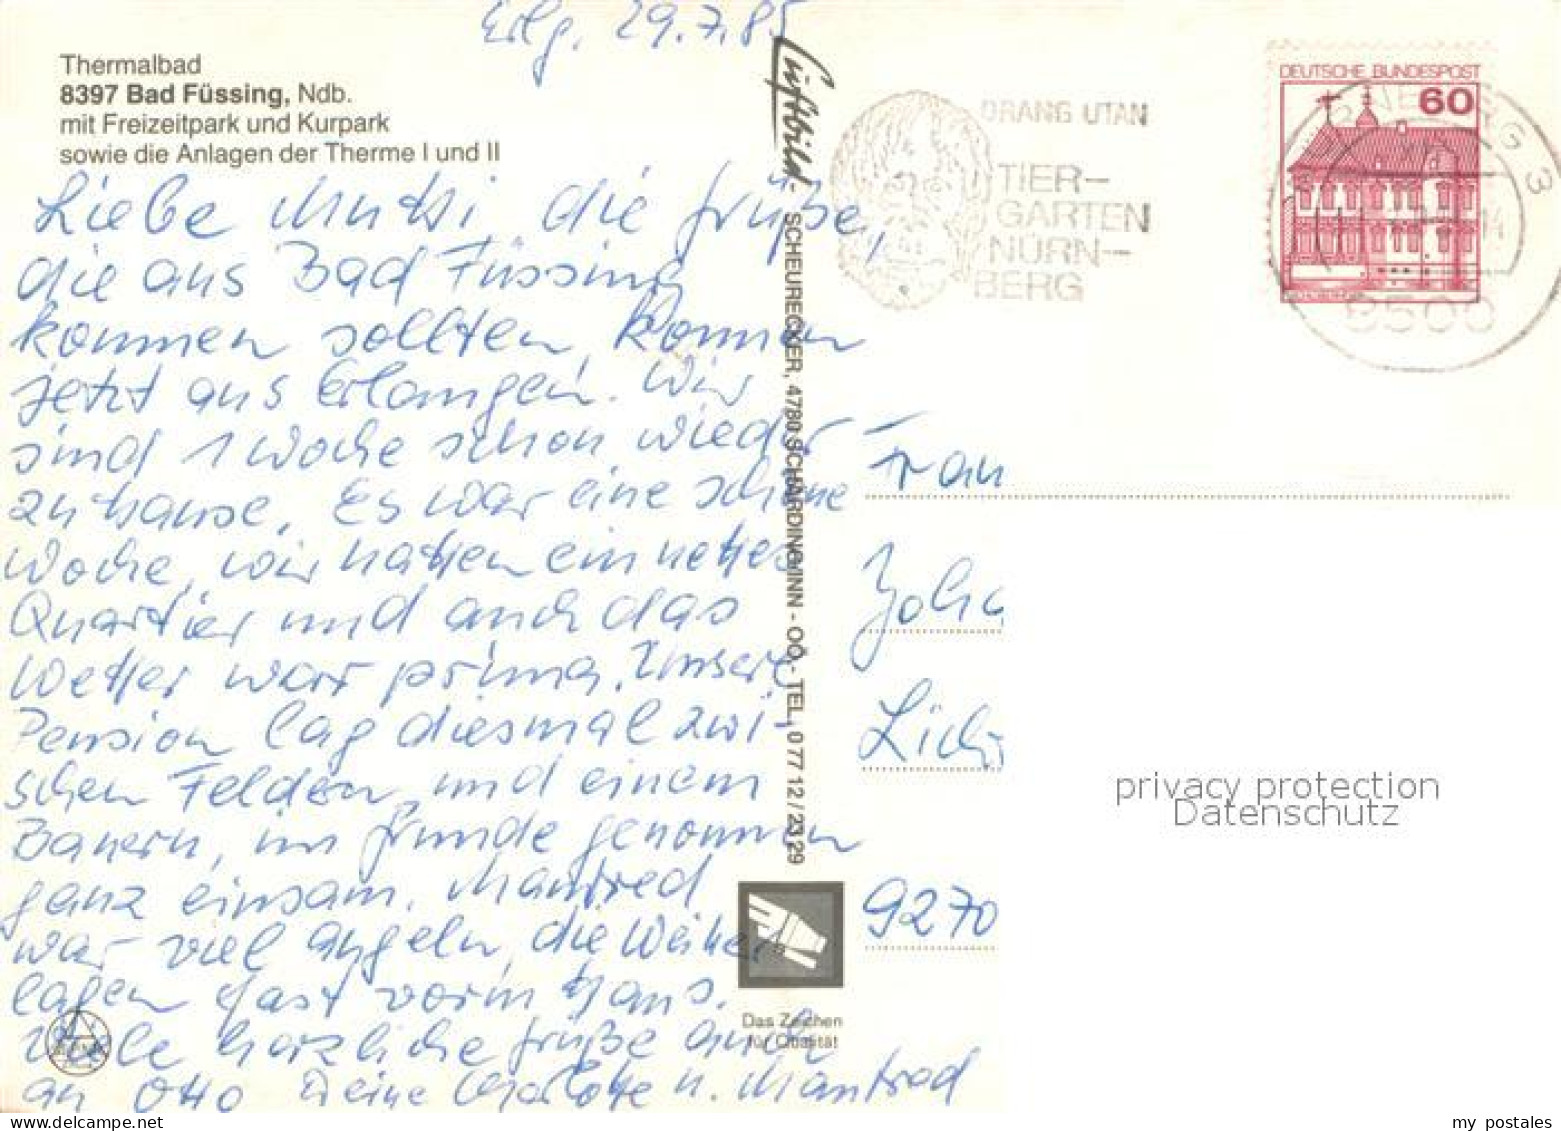 Erlg. 29.7.85
Thermalbad
8397 Bad Füssing, Ndb.
mit Freizeitpark und Kurpark
sowie die Anlagen der Therme I und II
Liebe Mutti, die Grüße,
die aus Bad Füssing
kommen sollten, kommen
jetzt aus Erlangen. Wir
sind 1 Woche schon wieder
zuhause. Es war eine schöne
Woche, wir hatten ein nettes
Quartier und auch das
Wetter war prima. Unsere
Pension lag diesmal zwi-
schen Feldern und einem
Bauern, im Grunde genommen
ganz einsam. Manfred
war viel angeln, die Weiher
lagen fast vorm Haus.
Viele herzliche Grüße auch
an Otto Deine Charlotte u. Manfred
Luftbild - SCHEURECKER, 4780 SCHÄRDING/INN - OÖ. - TEL. 0 77 12 / 23 29
Das Zeichen
für Qualität
ORANG UTAN
TIER-
GARTEN
NÜRN-
BERG
DEUTSCHE BUNDESPOST
60
8500
Frau
Joha
Lich
9270
privacy protection
Datenschutz
my postales